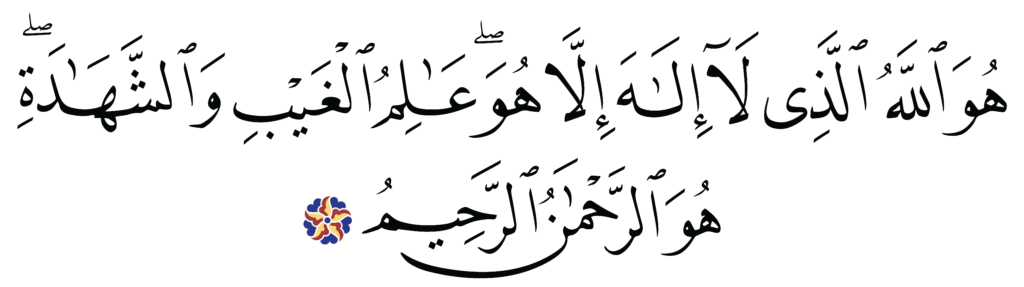 هُوَ ٱللَّهُ ٱلَّذِى لَآ إِلَـٰهَ إِلَّا هُوَ ۖ عَـٰلِمُ ٱلْغَيْبِ وَٱلشَّهَـٰدَةِ ۖ
هُوَ ٱلرَّحْمَـٰنُ ٱلرَّحِيمُ